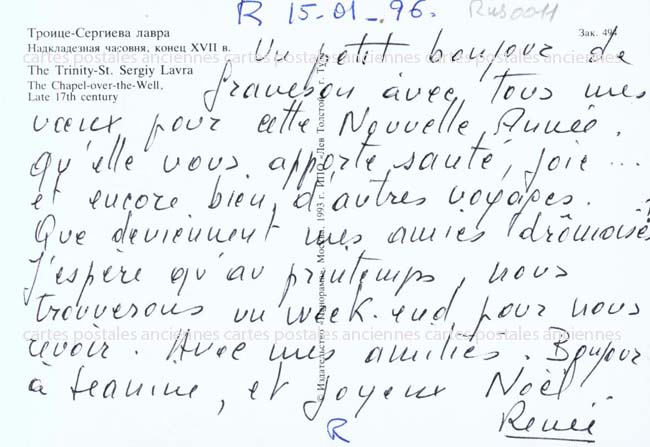 R 15-01-96.
Rus0011
Троице-Сергиева лавра
Зак. 494
Надкладезная часовня, конец XVII в.
The Trinity-St. Sergiy Lavra
The Chapel-over-the-Well,
Late 17th century
cartes postales anciennes cartes postales anciennes cartes postales anciennes
Un petit bonjour de
Graveson avec tous mes
vœux pour cette Nouvelle Année.
qu'elle vous apporte santé, joie ...
et encore bien d'autres voyages.
Que deviennent mes amies drômoises
J'espère qu'au printemps, nous
trouverons un week-end pour nous
revoir. Avec mes amitiés. Bonjour
à Jeanine, et Joyeux Noël.
Renée
R
cartes postales anciennes cartes postales anciennes cartes postales anciennes
© Издательство «Панорама». Москва. 1993 г. ИПО «Лев Толстой», г. Ту